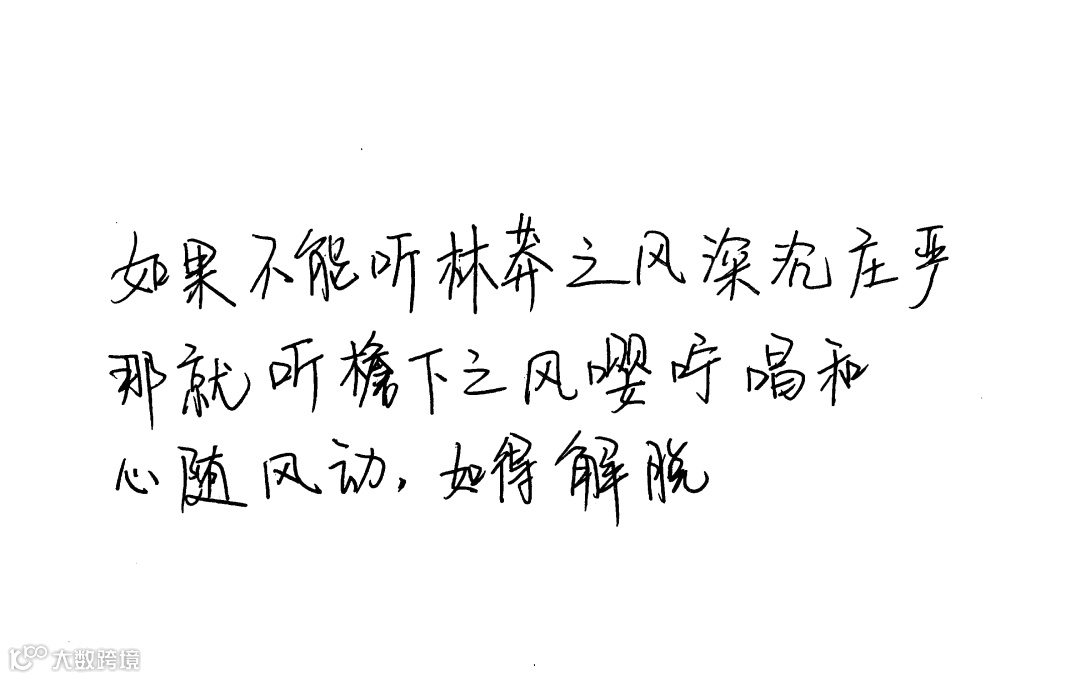 如果不能听林莽之风深沉庄严
那就听檐下之风嘤咛唱和
心随风动，如得解脱
大数跨境